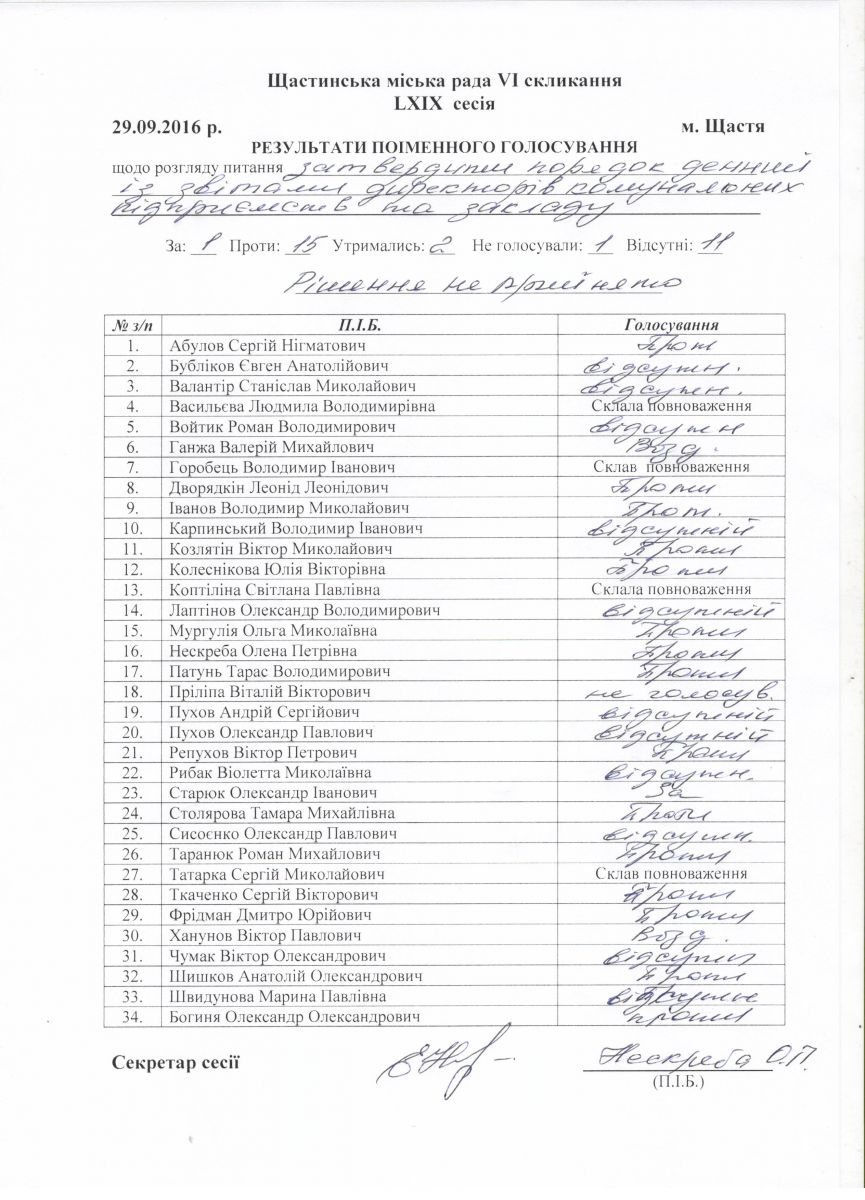 Щастинська міська рада VI скликання
LXIX сесія
29.09.2016 р. м. Щастя
РЕЗУЛЬТАТИ ПОІМЕННОГО ГОЛОСУВАННЯ
щодо розгляду питання затвердити порядок денний
із звітами директорів комунальних
підприємств та закладу
За: 1 Проти: 15 Утримались: 2 Не голосували: 1 Відсутні: 11
Рішення не прийнято
№ з/п П.І.Б. Голосування
1. Абулов Сергій Нігматович Прот
2. Бубліков Євген Анатолійович відсутн.
3. Валантір Станіслав Миколайович відсутн.
4. Васильєва Людмила Володимирівна Склала повноваження
5. Войтик Роман Володимирович відсутн
6. Ганжа Валерій Михайлович Возд.
7. Горобець Володимир Іванович Склав повноваження
8. Дворядкін Леонід Леонідович Проти
9. Іванов Володимир Миколайович Прот.
10. Карпинський Володимир Іванович відсутній
11. Козлятін Віктор Миколайович Проти
12. Колеснікова Юлія Вікторівна Проти
13. Коптіліна Світлана Павлівна Склала повноваження
14. Лаптінов Олександр Володимирович відсутній
15. Мургулія Ольга Миколаївна Проти
16. Нескреба Олена Петрівна Проти
17. Патунь Тарас Володимирович Проти
18. Пріліпа Віталій Вікторович не голосув.
19. Пухов Андрій Сергійович відсутній
20. Пухов Олександр Павлович Відсутній
21. Репухов Віктор Петрович Проти
22. Рибак Віолетта Миколаївна відсутн.
23. Старюк Олександр Іванович За
24. Столярова Тамара Михайлівна Проти
25. Сисоєнко Олександр Павлович відсутн.
26. Таранюк Роман Михайлович Проти
27. Татарка Сергій Миколайович Склав повноваження
28. Ткаченко Сергій Вікторович Проти
29. Фрідман Дмитро Юрійович Проти
30. Ханунов Віктор Павлович Возд.
31. Чумак Віктор Олександрович відсутн
32. Шишков Анатолій Олександрович Проти
33. Швидунова Марина Павлівна
34. Богиня Олександр Олександрович проти
Секретар сесії Нескреба О.П.
(П.І.Б.)